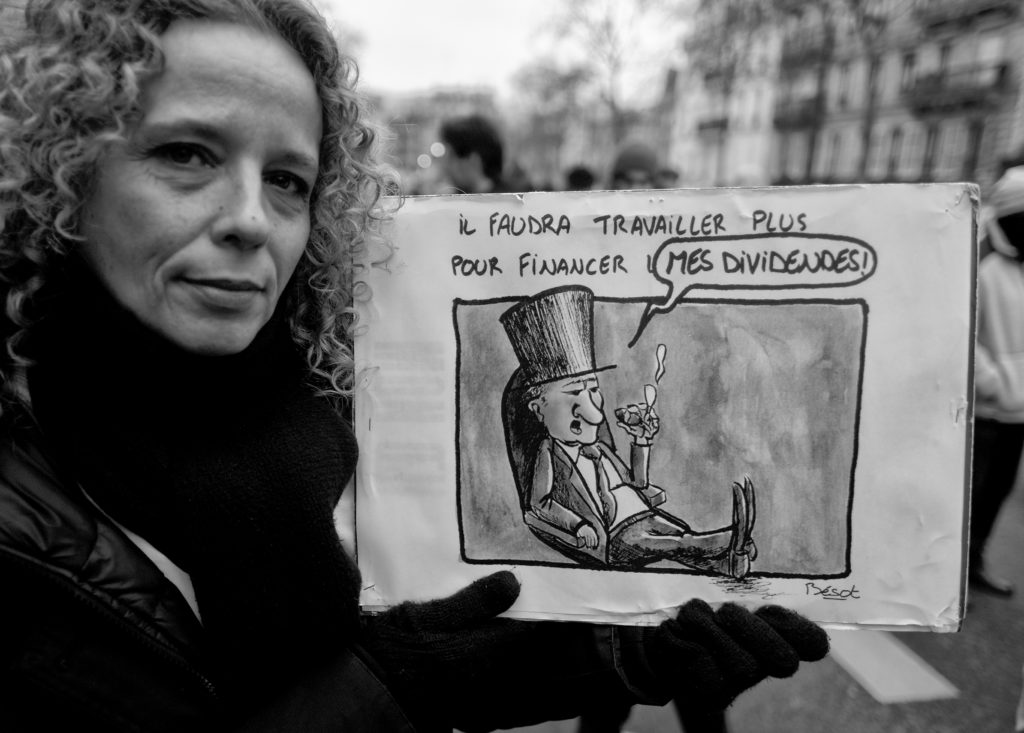 iL FAUDRA TRAVAILLER PLUS
POUR FiNANCER MES DiViDENDES!
Bésot